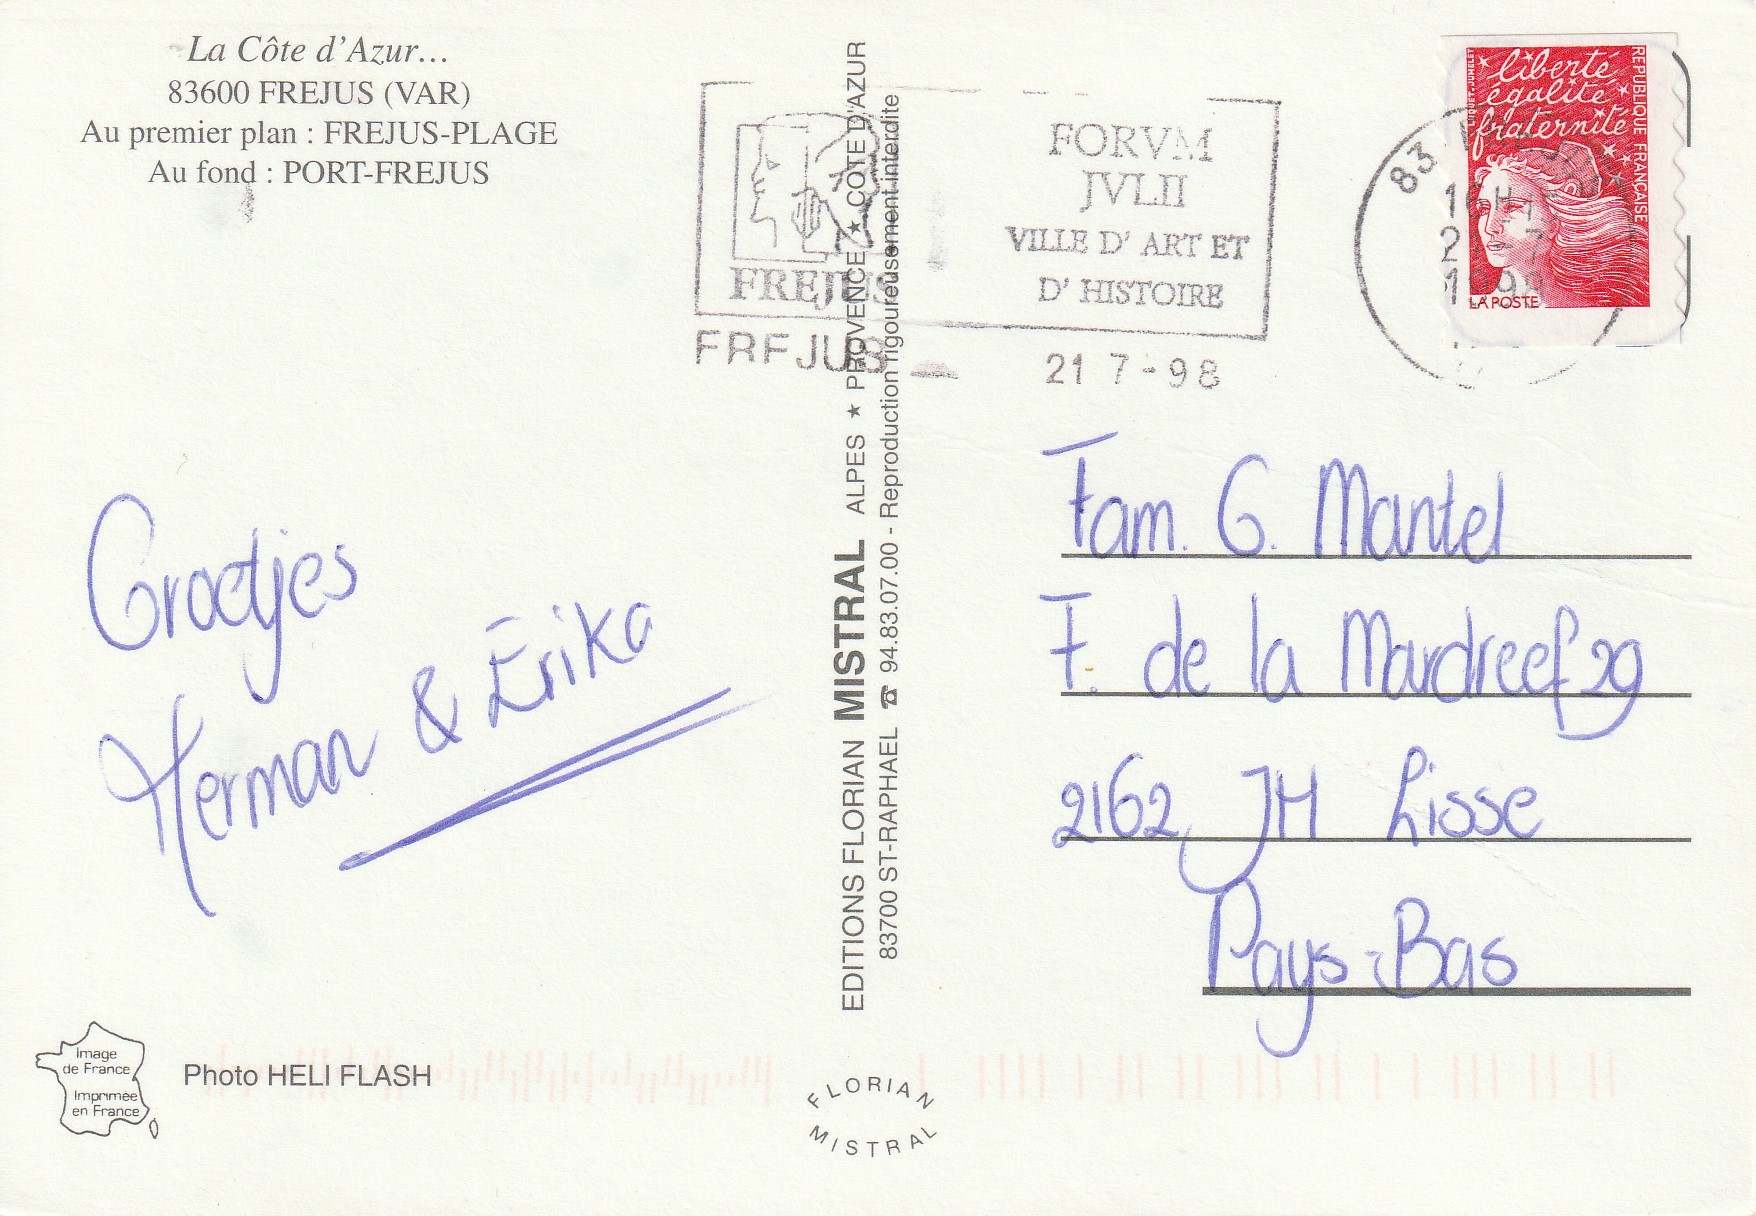 La Côte d'Azur...
83600 FREJUS (VAR)
Au premier plan : FREJUS-PLAGE
Au fond : PORT-FREJUS
FREJUS
FORVM
JVLII
VILLE D' ART ET
D' HISTOIRE
FREJUS
21 7-98
83
16H
1998
liberté
égalité
fraternité
REPUBLIQUE FRANÇAISE
LA POSTE
Groetjes
Herman & Erika
EDITIONS FLORIAN MISTRAL ALPES ★ PROVENCE ★ COTE D'AZUR
83700 ST-RAPHAEL ☎ 94.83.07.00 - Reproduction rigoureusement interdite
Fam. G. Mantel
F. de la Mardreef 29
2162 JH Lisse
Pays-Bas
Image
de France
Imprimée
en France
Photo HELI FLASH
FLORIAN
MISTRAL